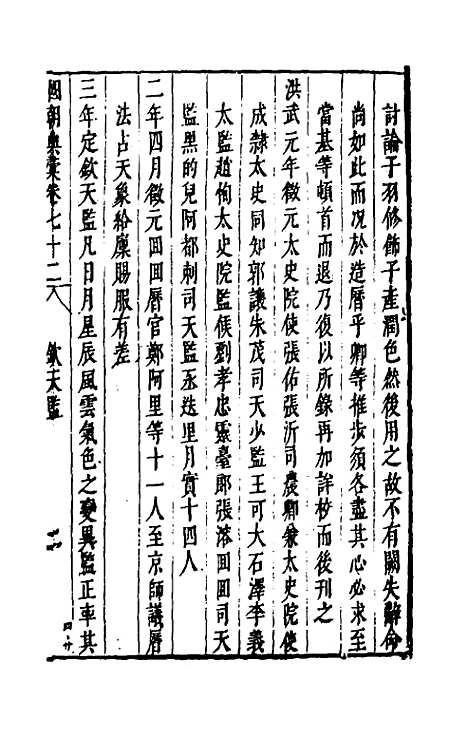 討論子羽修飾子產潤色然後用之故不有闕失辭命
尚如此而况於造曆乎卿等推步須各盡其心必求至
當基等頓首而退乃復以所錄再加詳校而後刊之
洪武元年徵元太史院使張佑張沂司農卿兼太史院使
成隷太史同知郭讓朱茂司天少監王可大石澤李義
太監趙恂太史院監候劉孝忠靈臺郎張容回回司天
監黑的兒阿都剌司天監丞迭里月實十四人
二年四月徵元回回曆官鄭阿里等十一人至京師議曆
法占天象給廪賜服有差
三年定欽天監凡日月星辰風雲氣色之變異監正率其
國朝典彙卷七十二 欽天監